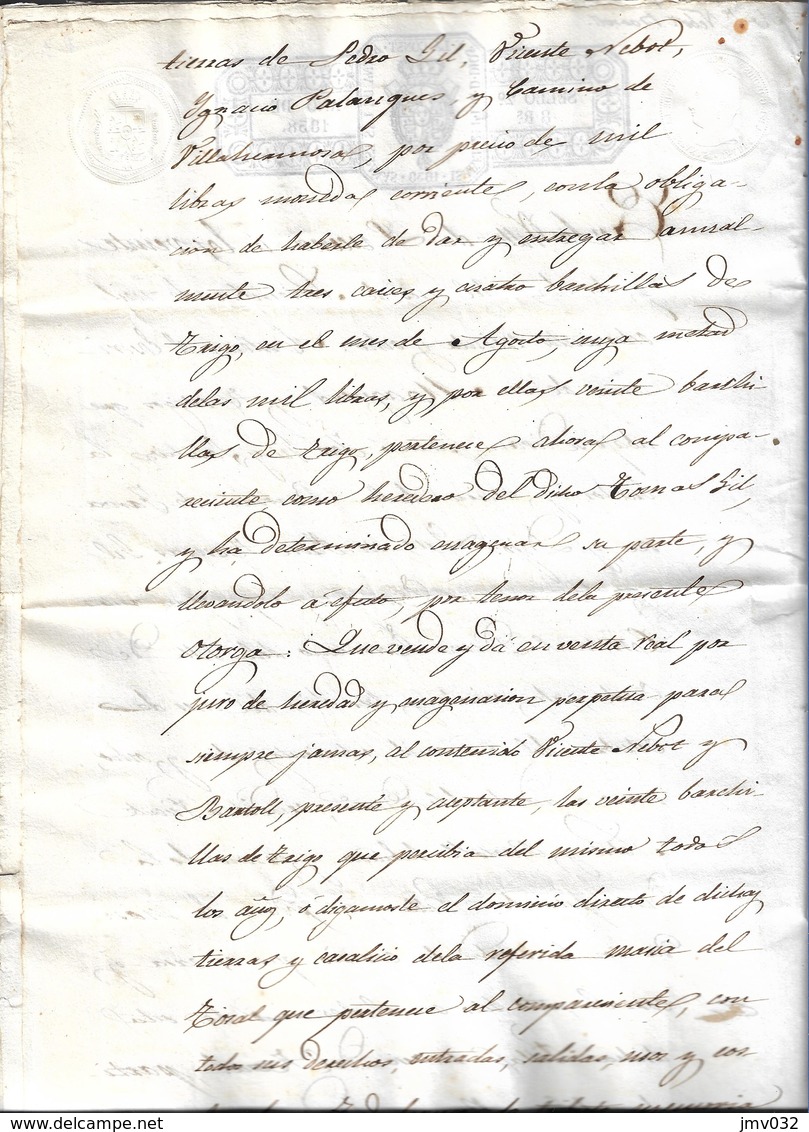 tierras de Pedro Gil, Vicente Nebot,
Ygnacio Palanques, y Camino de
Villahermosa, por precio de mil
libras moneda corriente, con la obliga-
cion de haberle de dar y entregar anual-
mente tres caices y cuatro barchillas de
trigo, en el mes de Agosto, cuya metad
delas mil libras, y por ellas veinte barchi-
llas de trigo, pertenece ahora al compa-
reciente como heredero del dicho Tomas Gil,
y há determinado enagenar su parte, y
llevandolo á efecto, por tenor dela presente
Otorga: Que vende y dá en venta real por
juro de heredad y enagenacion perpetua para
siempre jamas, al contenido Vicente Nebot y
Bartoll, presente y aceptante, las veinte barchi-
llas de trigo que percibia del mismo todos
los años, ó digamosle el dominio directo de dichas
tierras y casalicio dela referida masia del
Tosal que pertenece al compareciente, con
todos sus derechos, entradas, salidas, usos y cos-
jmv032